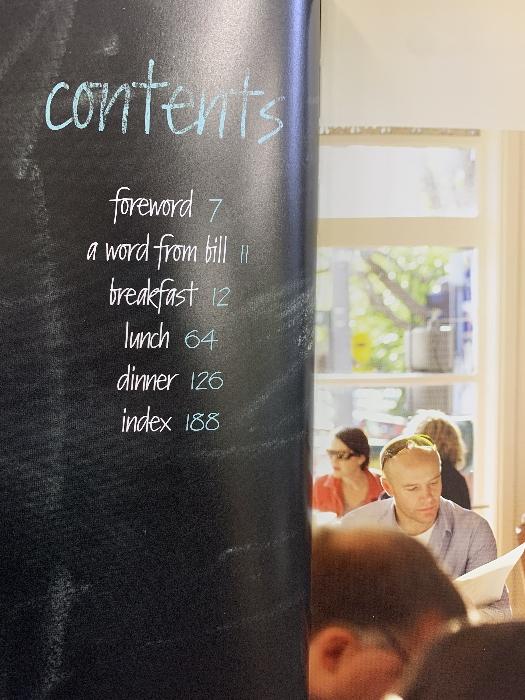 contents
foreword 7
a word from bill 11
breakfast 12
lunch 64
dinner 126
index 188